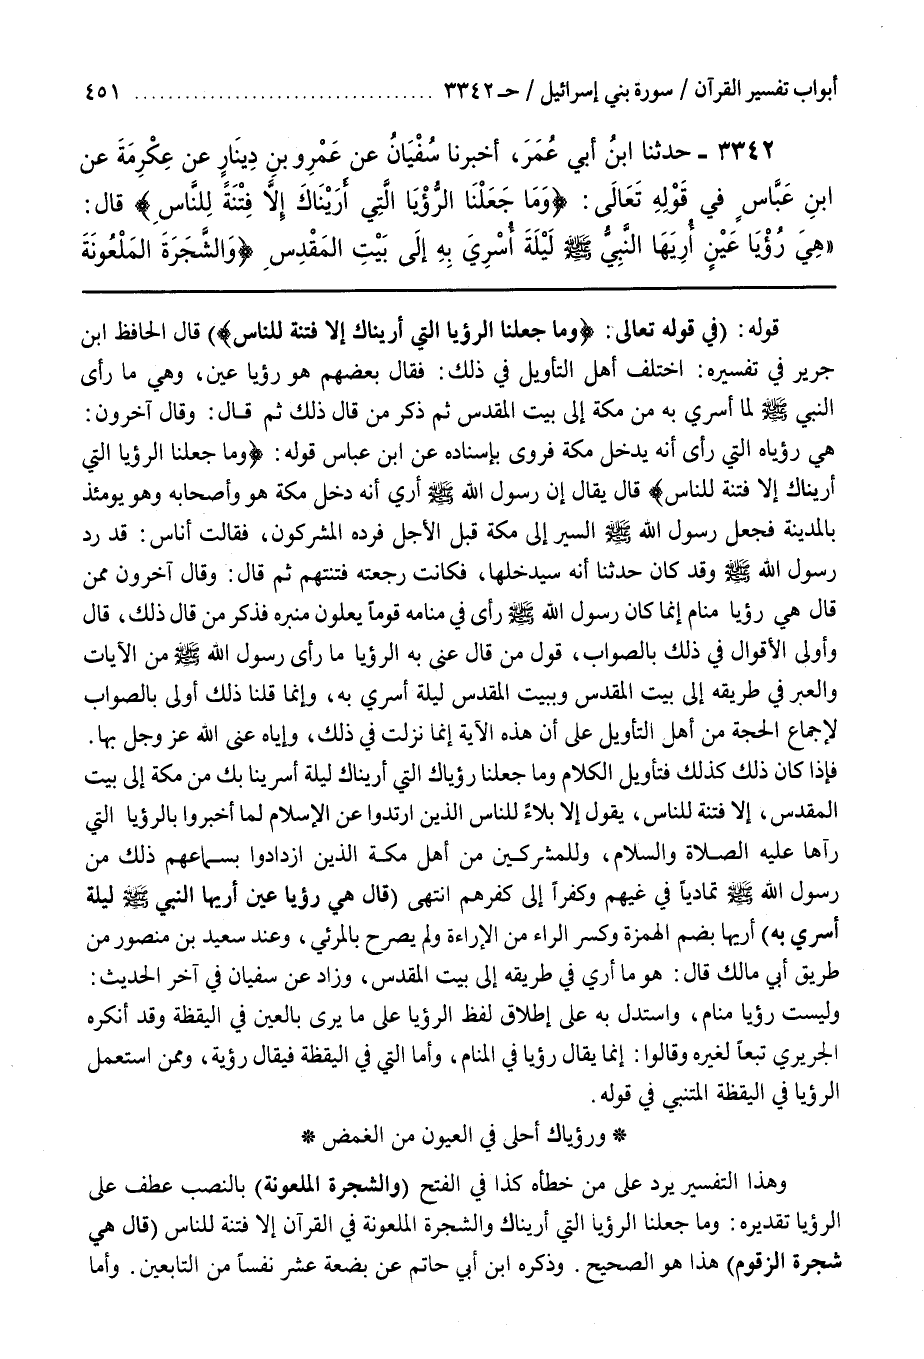 أبواب تفسير القرآن / سورة بني إسرائيل / حـ ٣٣٤٢ .................................. ٤٥١
٣٣٤٢ - حدثنا ابنُ أبي عُمَرَ، أخبرنا سُفْيَانُ عن عَمْرِو بنِ دِينَارٍ عن عِكْرِمَةَ عن
ابنِ عَبَّاسٍ في قَوْلِهِ تَعَالى: ﴿وَمَا جَعَلْنَا الرُّؤْيَا الَّتِي أَرَيْنَاكَ إِلَّا فِتْنَةً لِلنَّاسِ﴾ قال:
«هِيَ رُؤْيَا عَيْنٍ أُرِيَهَا النَّبِيُّ ﷺ لَيْلَةَ أُسْرِيَ بِهِ إلَى بَيْتِ المَقْدِسِ ﴿وَالشَّجَرَةَ المَلْعُونَةَ
قوله: (في قوله تعالى: ﴿وما جعلنا الرؤيا التي أريناك إلا فتنة للناس﴾) قال الحافظ ابن
جرير في تفسيره: اختلف أهل التأويل في ذلك: فقال بعضهم هو رؤيا عين، وهي ما رأى
النبي ﷺ لما أسري به من مكة إلى بيت المقدس ثم ذكر من قال ذلك ثم قـال: وقال آخرون:
هي رؤياه التي رأى أنه يدخل مكة فروى بإسناده عن ابن عباس قوله: ﴿وما جعلنا الرؤيا التي
أريناك إلا فتنة للناس﴾ قال يقال إن رسول الله ﷺ أري أنه دخل مكة هو وأصحابه وهو يومئذ
بالمدينة فجعل رسول الله ﷺ السير إلى مكة قبل الأجل فرده المشركون، فقالت أناس: قد رد
رسول الله ﷺ وقد كان حدثنا أنه سيدخلها، فكانت رجعته فتنتهم ثم قال: وقال آخرون ممن
قال هي رؤيا منام إنما كان رسول الله ﷺ رأى في منامه قوماً يعلون منبره فذكر من قال ذلك، قال
وأولى الأقوال في ذلك بالصواب، قول من قال عنى به الرؤيا ما رأى رسول الله ﷺ من الآيات
والعبر في طريقه إلى بيت المقدس وببيت المقدس ليلة أسري به، وإنما قلنا ذلك أولى بالصواب
لإجماع الحجة من أهل التأويل على أن هذه الآية إنما نزلت في ذلك، وإياه عنى الله عز وجل بها.
فإذا كان ذلك كذلك فتأويل الكلام وما جعلنا رؤياك التي أريناك ليلة أسرينا بك من مكة إلى بيت
المقدس، إلا فتنة للناس، يقول إلا بلاءً للناس الذين ارتدوا عن الإسلام لما أخبروا بالرؤيا التي
رآها عليه الصلاة والسلام، وللمشركين من أهل مكة الذين ازدادوا بسماعهم ذلك من
رسول الله ﷺ تمادياً في غيهم وكفراً إلى كفرهم انتهى (قال هي رؤيا عين أريها النبي ﷺ ليلة
أسري به) أريها بضم الهمزة وكسر الراء من الإراءة ولم يصرح بالمرئي، وعند سعيد بن منصور من
طريق أبي مالك قال: هو ما أري في طريقه إلى بيت المقدس، وزاد عن سفيان في آخر الحديث:
وليست رؤيا منام، واستدل به على إطلاق لفظ الرؤيا على ما يرى بالعين في اليقظة وقد أنكره
الحريري تبعاً لغيره وقالوا: إنما يقال رؤيا في المنام، وأما التي في اليقظة فيقال رؤية، وممن استعمل
الرؤيا في اليقظة المتنبي في قوله.
* ورؤياك أحلى في العيون من الغمض *
وهذا التفسير يرد على من خطأه كذا في الفتح (والشجرة الملعونة) بالنصب عطف على
الرؤيا تقديره: وما جعلنا الرؤيا التي أريناك والشجرة الملعونة في القرآن إلا فتنة للناس (قال هي
شجرة الزقوم) هذا هو الصحيح. وذكره ابن أبي حاتم عن بضعة عشر نفساً من التابعين. وأما